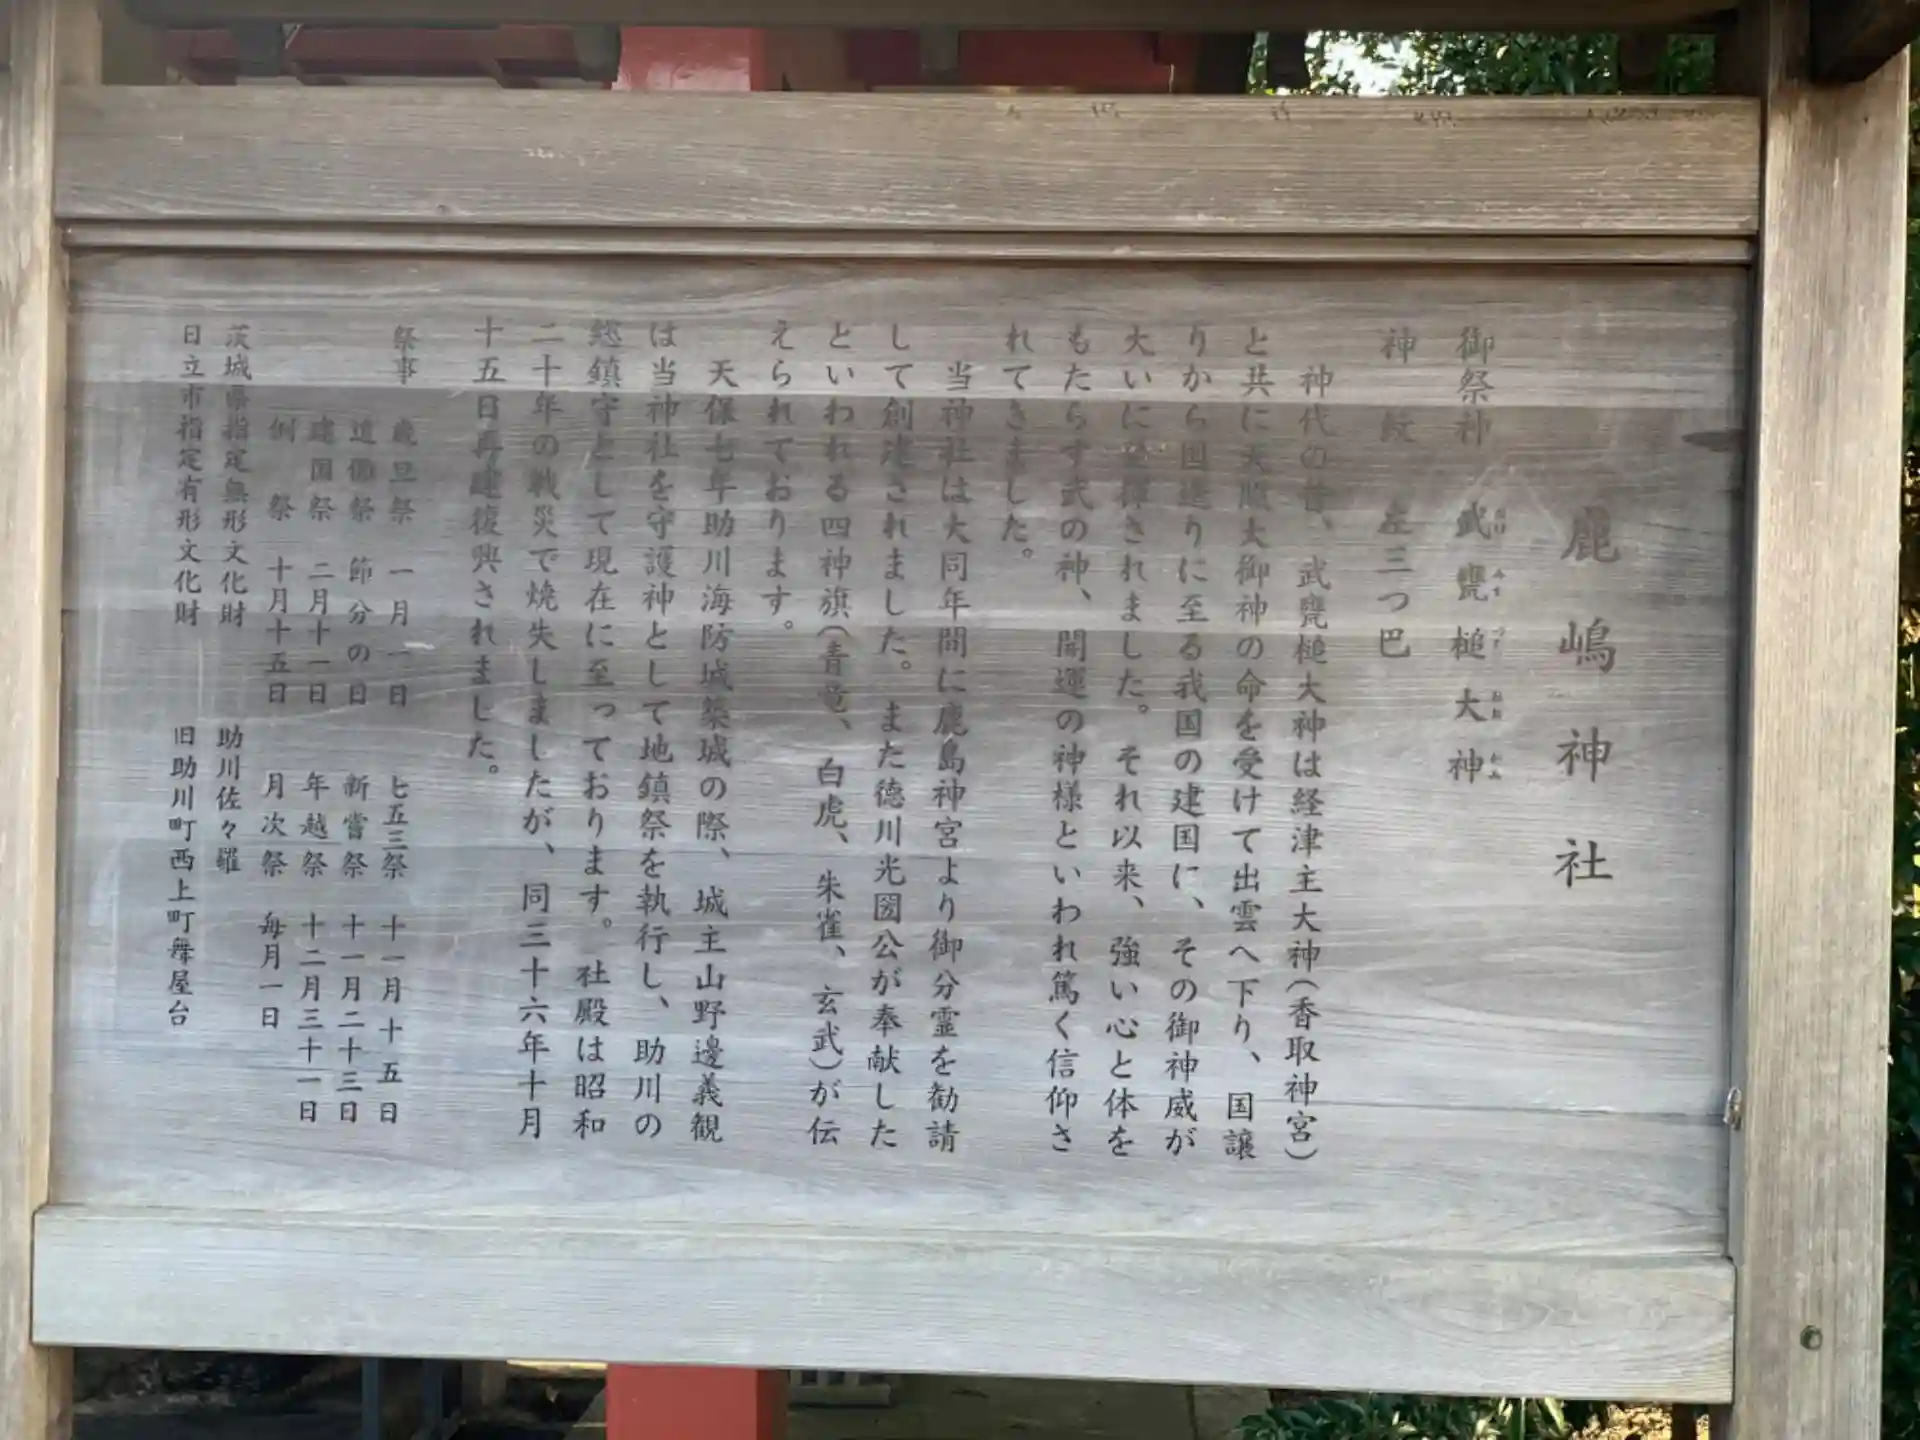 鹿嶋神社
御祭神 武甕槌大神
神紋 左三つ巴
神代の昔、武甕槌大神は経津主大神(香取神宮)
と共に天照大御神の命を受けて出雲へ下り、国譲
りから国造りに至る我国の建国に、その御神威が
大いに発揮されました。それ以来、強い心と体を
もたらす武の神、開運の神様といわれ篤く信仰さ
れてきました。
当神社は大同年間に鹿島神宮より御分霊を勧請
して創建されました。また徳川光圀公が奉献した
といわれる四神旗(青竜、白虎、朱雀、玄武)が伝
えられております。
天保七年助川海防城築城の際、城主山野邊義観
は当神社を守護神として地鎮祭を執行し、助川の
総鎮守として現在に至っております。社殿は昭和
二十年の戦災で焼失しましたが、同三十六年十月
十五日再建復興されました。
祭事 歳旦祭 一月一日 七五三祭 十一月十五日
追儺祭 節分の日 新嘗祭 十一月二十三日
建国祭 二月十一日 年越祭 十二月三十一日
例祭 十月十五日 月次祭 毎月一日
茨城県指定無形文化財 助川佐々羅
日立市指定有形文化財 旧助川町西上町舞屋台